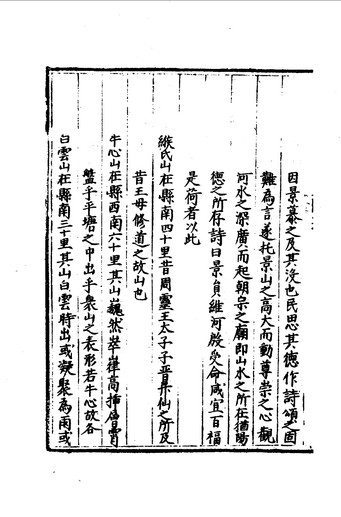 因景慕之及其没也民思其德作詩頌之固
難為言遂托景山之高大而動尊崇之心觀
河水之深廣而起朝宗之願即山水之所在猶陽
德之所存詩曰景負維河殷受命咸宜百福
是荷者以此
緱氏山在縣南四十里昔周靈王太子子晋昇仙之所及
昔王母修道之故山也
牛心山在縣西南六十里其山巍然崒嵂高插層霄
盤乎平壩之中出乎衆山之表形若牛心故名
白雲山在縣南三十里其山白雲時出或凝聚為雨或